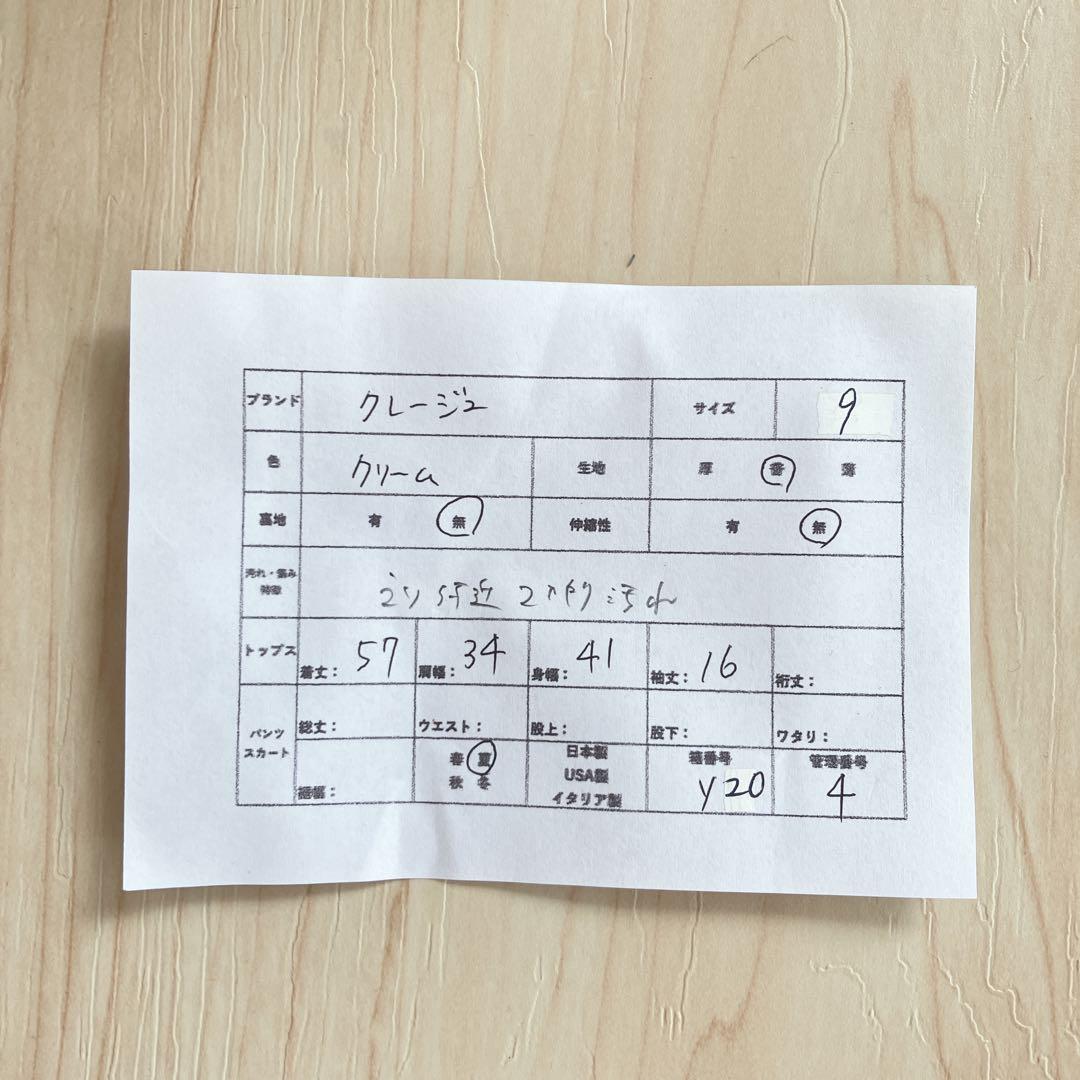 ブランド クレージュ サイズ 9
色 クリーム 生地 厚 普 薄
裏地 有 無 伸縮性 有 無
汚れ・傷み
特徴
えり付近 汚れ
トップス 着丈： 57 肩幅： 34 身幅： 41 袖丈： 16 裄丈：
パンツ
スカート
総丈： ウエスト： 股上： 股下： ワタリ：
裾幅：
春 夏
秋 冬
日本製
USA製
イタリア製
箱番号
Y20
管理番号
4